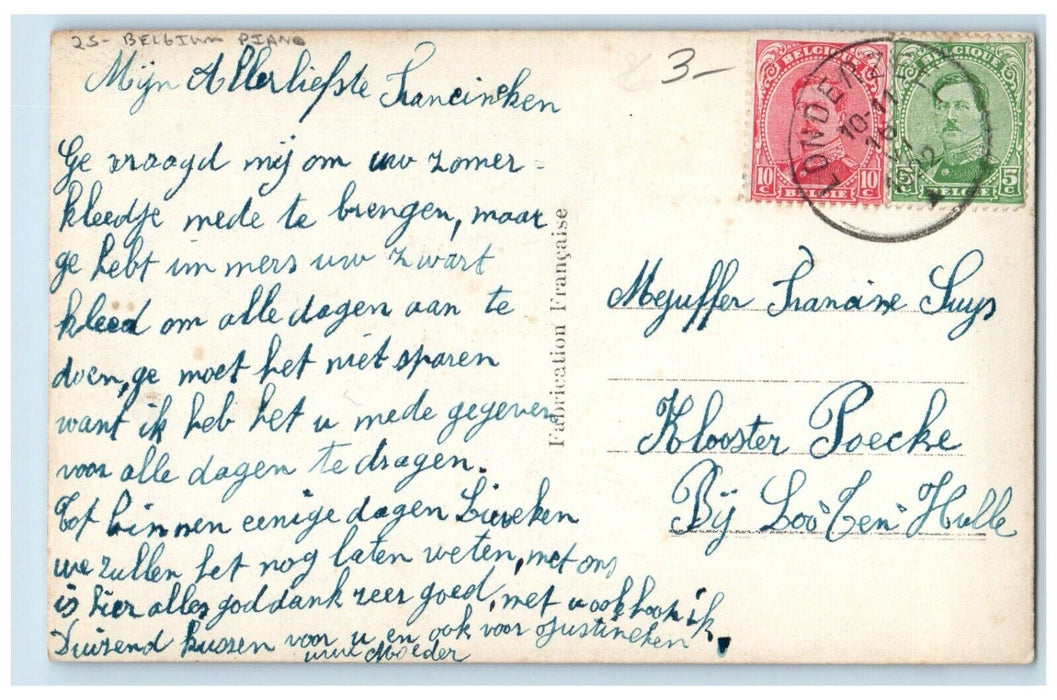 25- BELGIUM PIANO
3-
Mijn Allerliefste Francineken
Ge vraagd mij om uw zomer=
kleedje mede te brengen, maar
ge hebt immers uw zwart
kleed om alle dagen aan te
doen, ge moet het niet sparen
want ik heb het u mede gegeven
voor alle dagen te dragen.
Tot binnen eenige dagen Lieveken
we zullen het nog laten weten, met ons
is hier alles goddank zeer goed, met u ook hoop ik,
Duizend kussen voor u en ook voor Justineken
uwe Moeder
Fabrication Française
BELGIQUE
10 C 10 C
BELGIË
BELGIQUE
5 C
BELGIË
10-11
1922
Mejuffer Francine Suys
Klooster Poecke
Bij Loo "Ten" Hulle